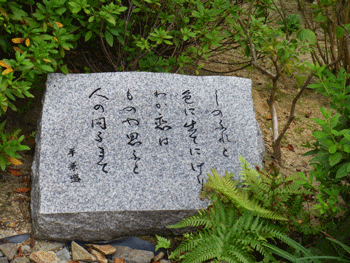 しのぶれど
色に出でにけり
わが恋は
ものや思ふと
人の問ふまで
平兼盛